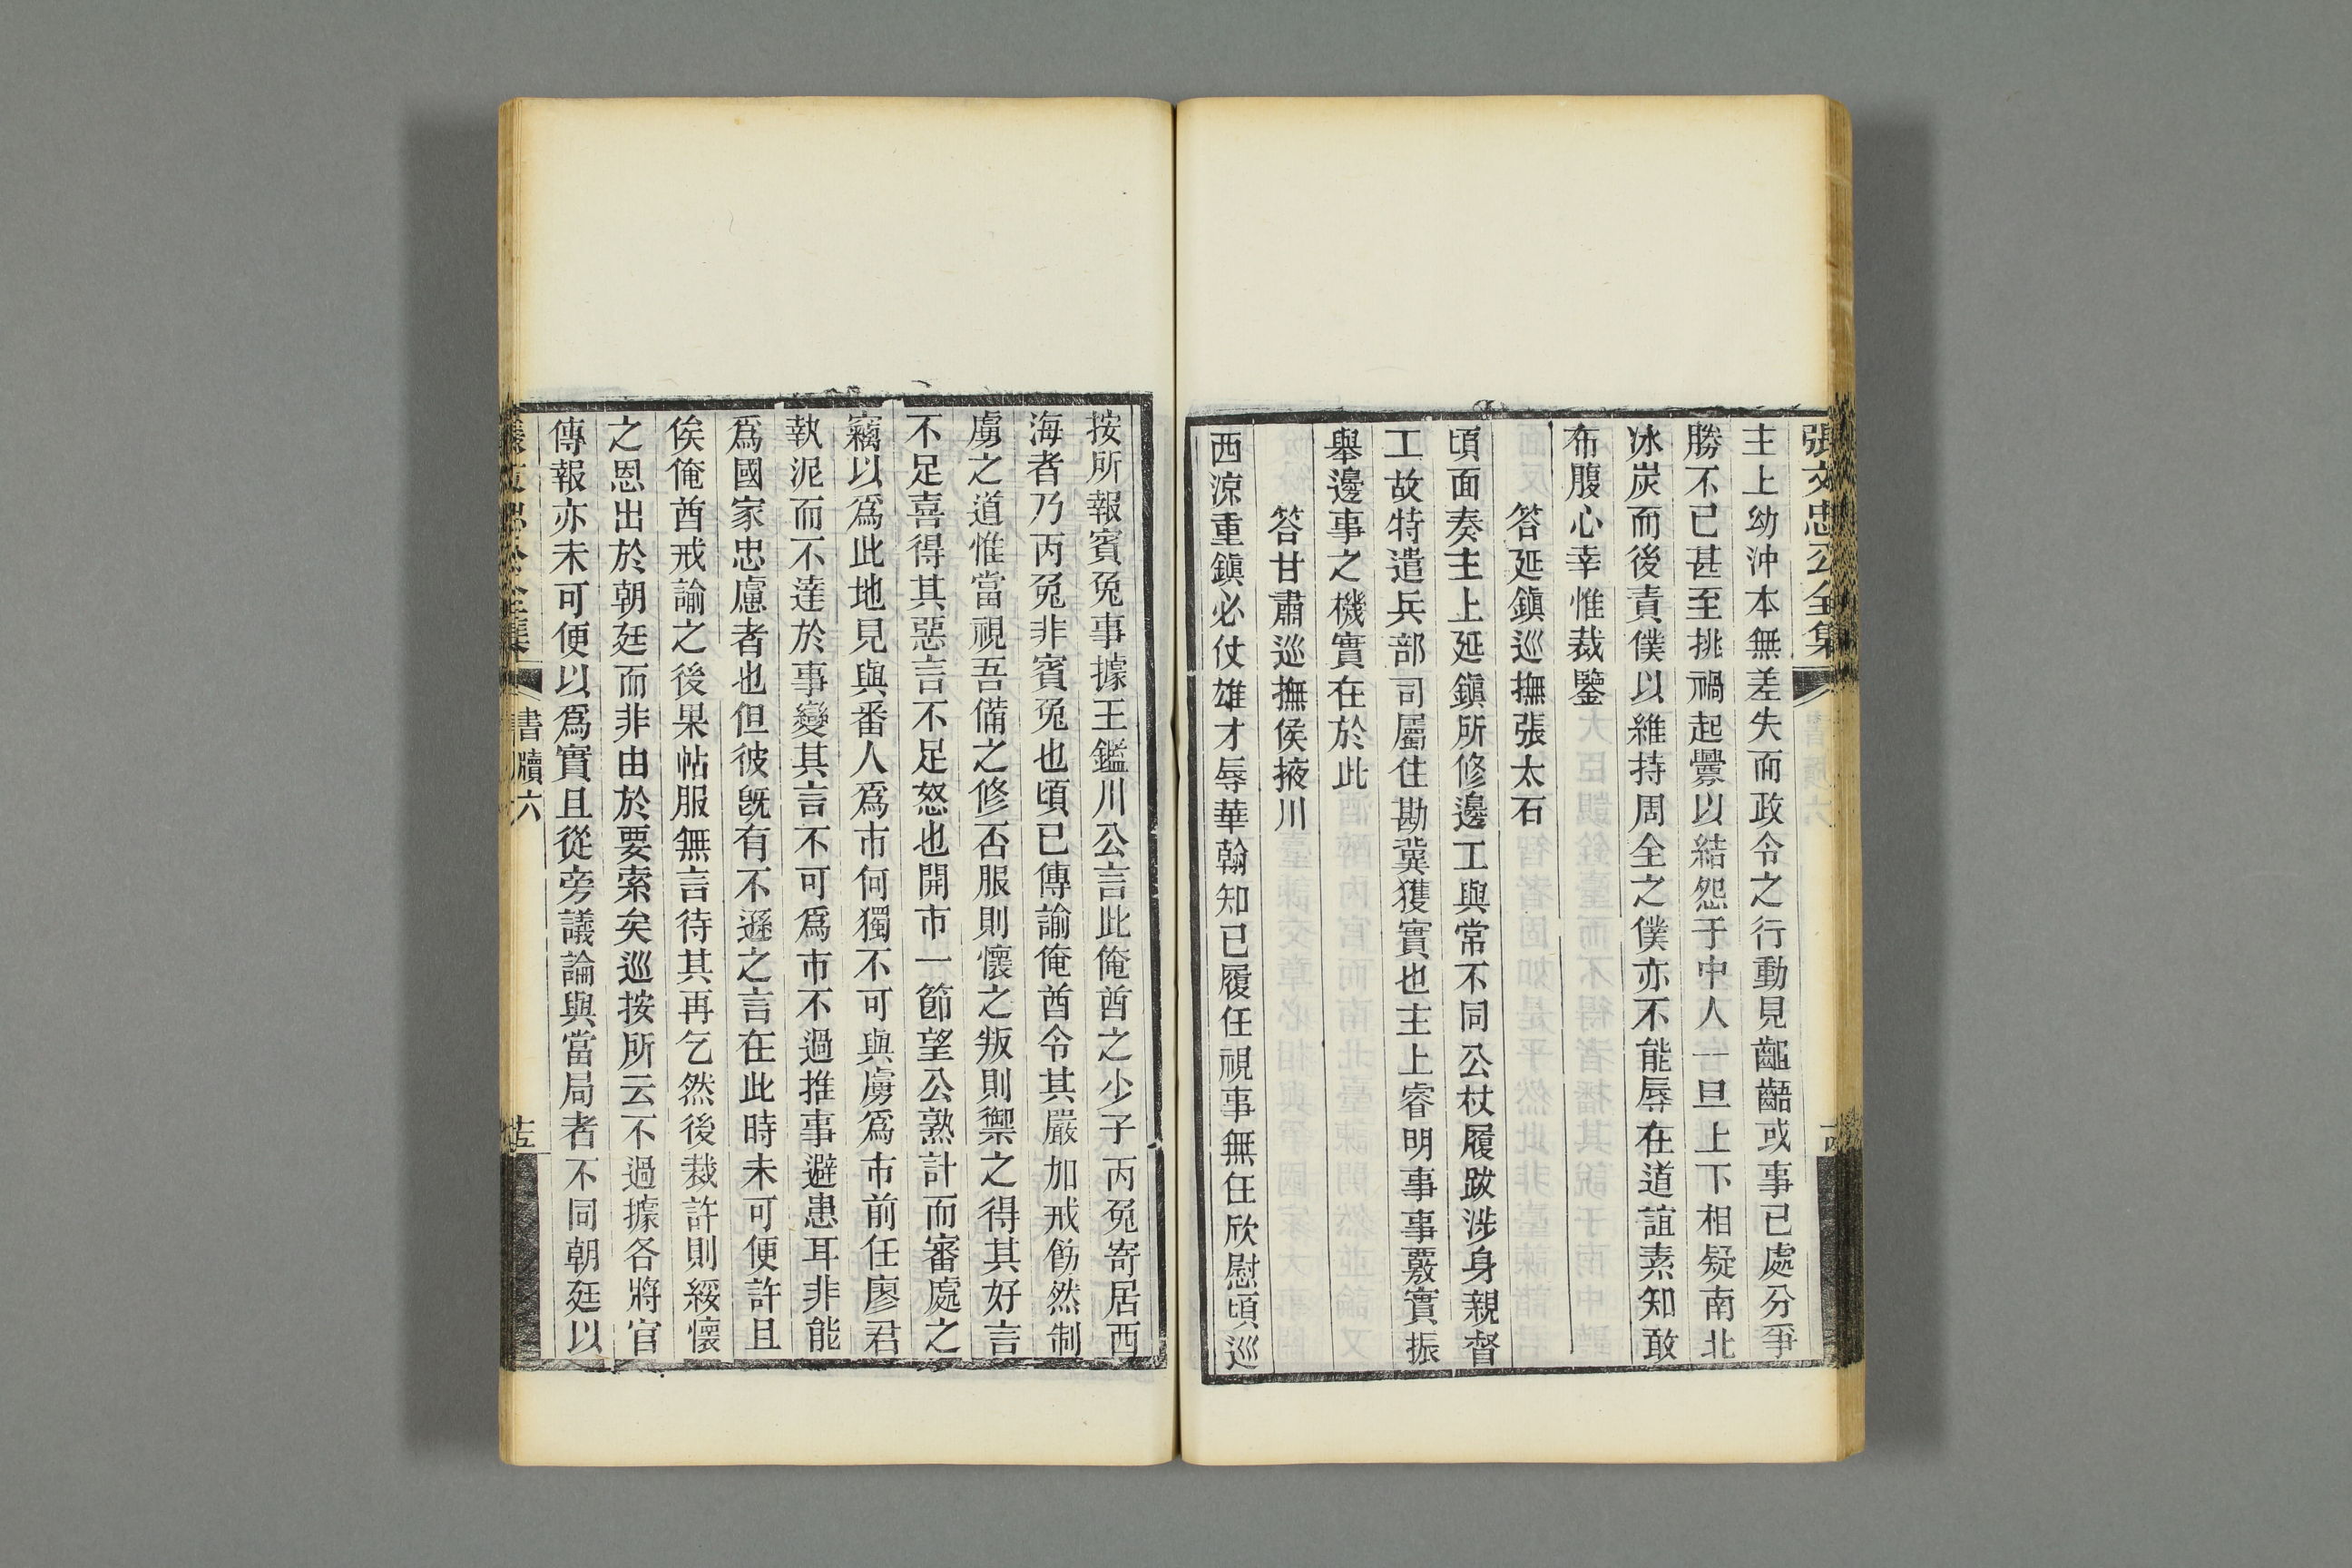 張文忠公全集
主上幼沖本無差失而政令之行動見齟齬或事已處分爭
勝不已甚至挑禍起釁以結怨于中人一旦上下相疑南北
冰炭而後責僕以維持周全之僕亦不能辱在道誼素知敢
布腹心幸惟裁鑒
答延鎮巡撫張太石
頃面奏主上延鎮所修邊工與常不同公杖履跋涉身親督
工故特遣兵部司屬住勘冀獲實也主上睿明事事覈實振
舉邊事之機實在於此
答甘肅巡撫侯掖川
西涼重鎮必仗雄才辱華翰知已履任視事無任欣慰頃巡
按所報賓兔事據王鑑川公言此俺酋之少子丙兔寄居西
海者乃丙兔非賓兔也頃已傳諭俺酋令其嚴加戒飭然制
虜之道惟當視吾備之修否服則懷之叛則禦之得其好言
不足喜得其惡言不足怒也開市一節望公熟計而審處之
竊以爲此地見與番人爲市何獨不可與虜爲市前任廖君
執泥而不達於事變其言不可爲市不過推事避患耳非能
爲國家忠慮者也但彼旣有不遜之言在此時未可便許且
俟俺酋戒諭之後果帖服無言待其再乞然後裁許則綏懷
之恩出於朝廷而非由於要索矣巡按所云不過據各將官
傳報亦未可便以爲實且從旁議論與當局者不同朝廷以
書牘六